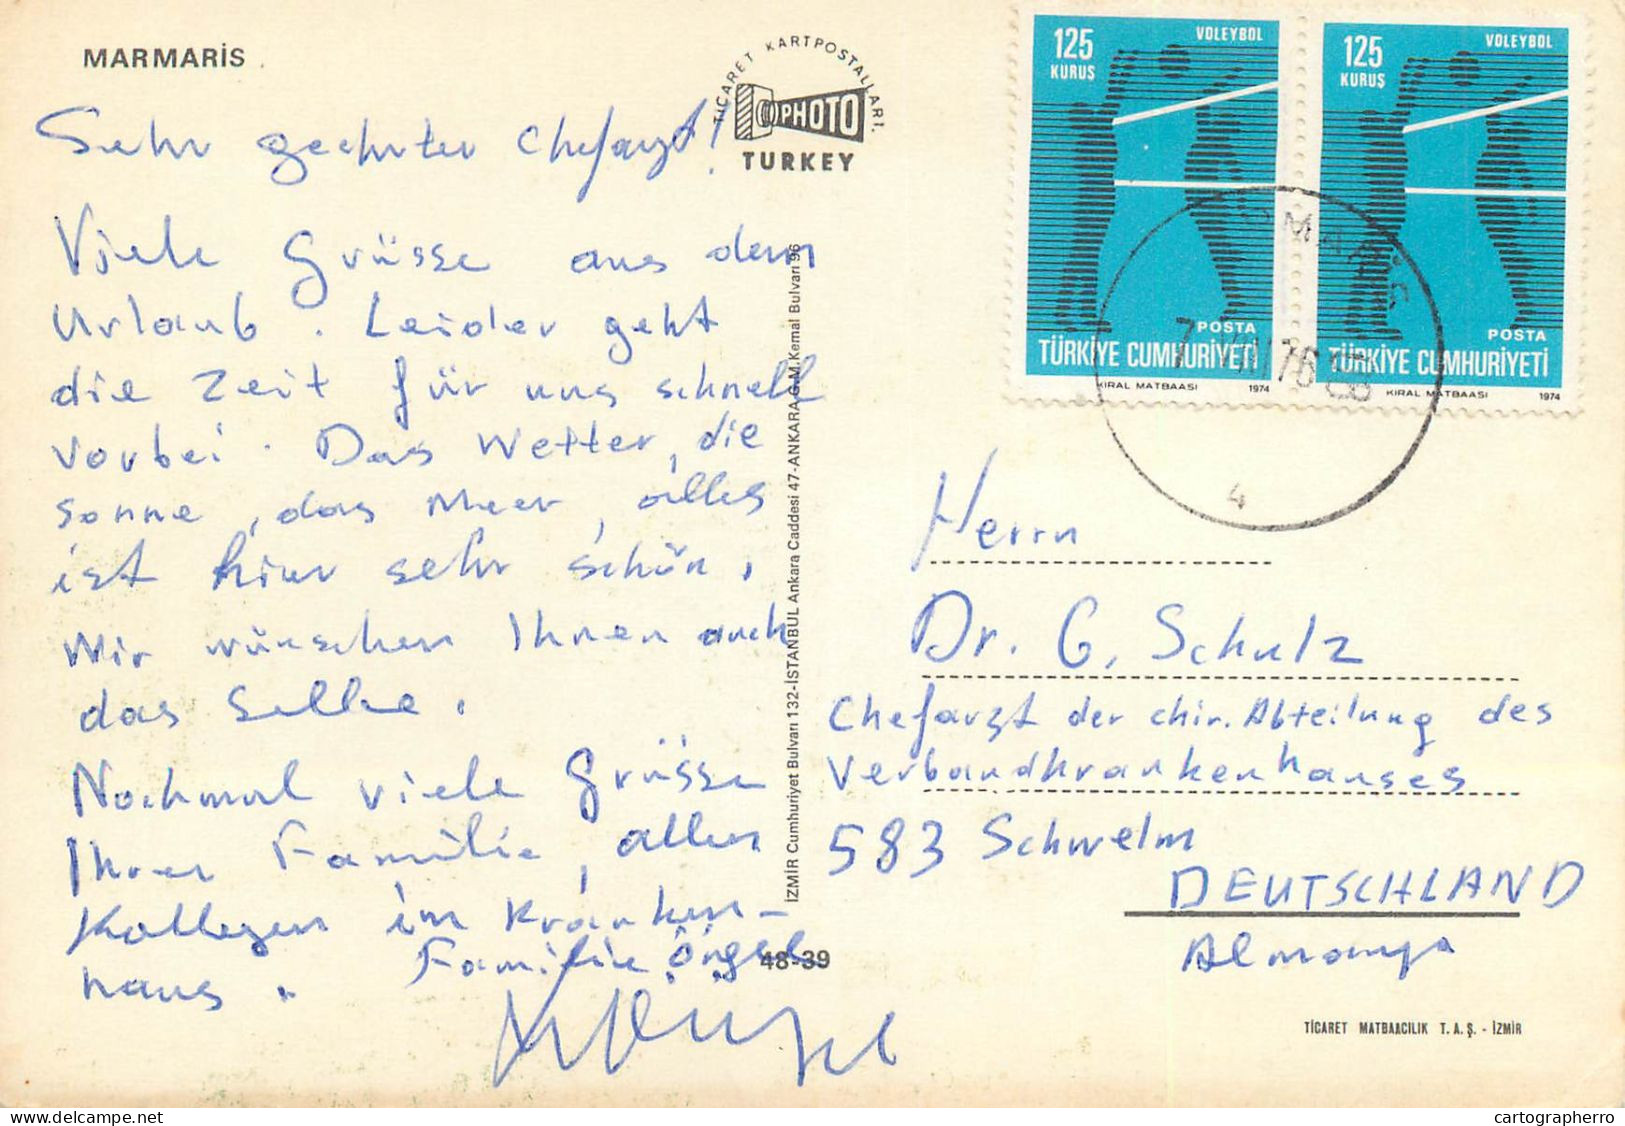 MARMARİS
TİCARET KARTPOSTALLARI.
PHOTO
TURKEY
Sehr geehrter Chefarzt!
Viele Grüsse aus dem
Urlaub. Leider geht
die Zeit für uns schnell
vorbei. Das Wetter, die
Sonne, das Meer, alles
ist hier sehr schön.
Wir wünschen Ihnen auch
das Selbe.
Nochmal viele Grüsse
Ihrer Familie, allen
Kollegen im Kranken-
haus. Familie
İZMİR Cumhuriyet Bulvarı 132-İSTANBUL Ankara Caddesi 47-ANKARA G.M.Kemal Bulvarı 96
48-39
125
KURUŞ
VOLEYBOL
POSTA
TÜRKİYE CUMHURİYETİ
KIRAL MATBAASI 1974
125
KURUŞ
VOLEYBOL
POSTA
TÜRKİYE CUMHURİYETİ
KIRAL MATBAASI 1974
7 VIII 76
4
Herrn
Dr. G. Schulz
Chefarzt der chir. Abteilung des
Verbandkrankenhauses
583 Schwelm
DEUTSCHLAND
Almanya
TİCARET MATBAACILIK T. A. Ş. - İZMİR
delcampe.net
cartographerro